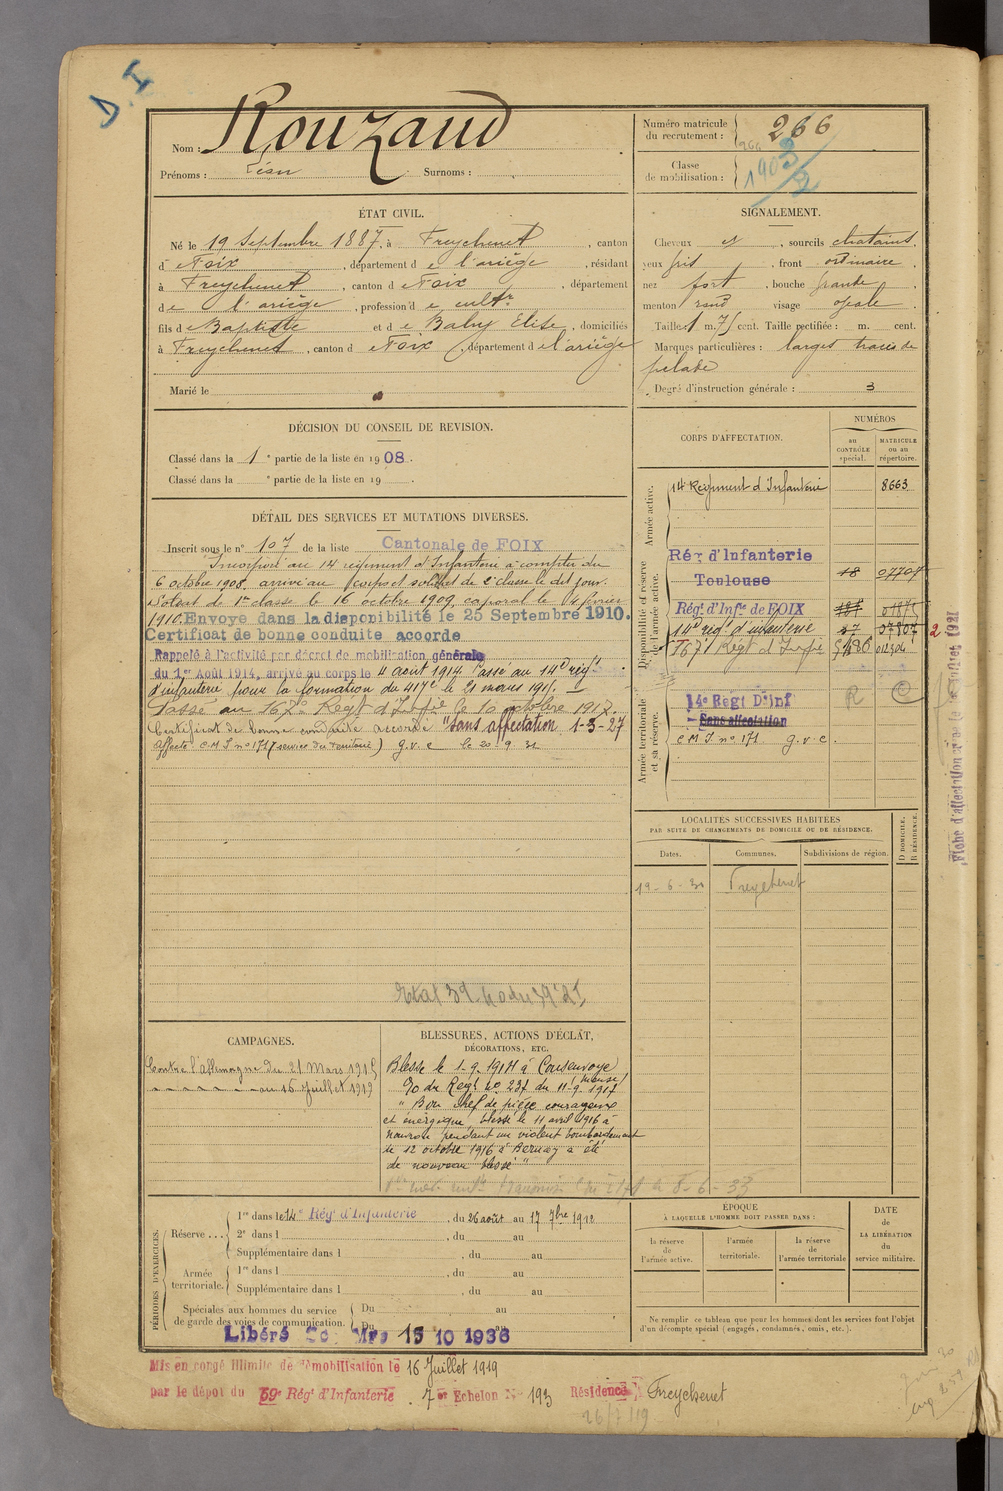 D. I
Nom : Rouzaud
Prénoms : Léon Surnoms :
Numéro matricule du recrutement : 266
Classe de mobilisation : 1903/2
ÉTAT CIVIL.
Né le 19 Septembre 1887, à Freychenet, canton
d e Foix, département d e l'ariège, résidant
à Freychenet, canton d e Foix, département
d e l'ariège, profession d e cultr
fils d e Baptiste et d e Baby Elise, domiciliés
à Freychenet, canton d e Foix, département d e l'ariège
Marié le
SIGNALEMENT.
Cheveux et, sourcils chatains,
yeux gris, front ordinaire,
nez fort, bouche grande,
menton rond visage ovale.
Taille 1 m. 75 cent. Taille rectifiée : m. cent.
Marques particulières : larges traces de
pelade
Degré d'instruction générale : 3
DÉCISION DU CONSEIL DE REVISION.
Classé dans la 1e partie de la liste en 1908.
Classé dans la e partie de la liste en 19 .
DÉTAIL DES SERVICES ET MUTATIONS DIVERSES.
Inscrit sous le n° 107 de la liste Cantonale de FOIX
Incorporé au 14 régiment d'Infanterie à compter du
6 octobre 1908. arrivé au corps et soldat de 2e classe le dit jour.
Soldat de 1re classe le 16 octobre 1909, caporal le 14 février
1910. Envoyé dans la disponibilité le 25 Septembre 1910.
Certificat de bonne conduite accordé
Rappelé à l'activité par décret de mobilisation générale
du 1er Août 1914, arrivé au corps le 4 août 1914. Passé au 14e régt
d'infanterie pour la formation du 417e le 21 mars 1915.
Passé au 167e Régt d'Infie le 10 octobre 1917.
Certificat de bonne conduite accordé "Sans affectation 1-3-27
Affecté C M I n° 171 (service du territoire) g.v.c le 20-9-32
CORPS D'AFFECTATION.
NUMÉROS
au CONTRÔLE spécial.
MATRICULE ou au répertoire.
Armée active.
14 Régiment d'Infanterie 8663
Disponibilité et réserve de l'armée active.
Rég d'Infanterie
Toulouse 18 07707
Régt d'Infie de FOIX 01875
14e régt d'infanterie 27 07807 2
167e Régt d'Infie 5486 012304
Armée territoriale et sa réserve.
R C
14e Regt D'inf
Sans affectation
C M I n° 171 g.v.c.
LOCALITÉS SUCCESSIVES HABITÉES
PAR SUITE DE CHANGEMENTS DE DOMICILE OU DE RÉSIDENCE.
Dates. Communes. Subdivisions de région. D DOMICILE. R RÉSIDENCE.
19-6-30 Freychenet
CAMPAGNES.
Contre l'allemagne du 21 Mars 1915
au 16 Juillet 1919
BLESSURES, ACTIONS D'ÉCLAT,
DÉCORATIONS, ETC.
Blessé le 1-9-1917 à Consenvoye
(Meuse)
O du Regt n° 237 du 11-9-1917
" Bon chef de pièce courageux
et énergique, blessé le 11 avril 1916 à
nouron pendant un violent bombardement
le 12 octobre 1916 à Bernay a été
de nouveau blessé"
PÉRIODES D'EXERCICES.
Réserve ... 1re dans le 14e Rég d'Infanterie, du 26 août au 17 7bre 1912
2e dans l , du au
Supplémentaire dans l , du au
Armée territoriale. 1re dans l , du au
Supplémentaire dans l , du au
Spéciales aux hommes du service de garde des voies de communication. Du au
Du au
Libéré 15 10 1936
ÉPOQUE
À LAQUELLE L'HOMME DOIT PASSER DANS :
la réserve de l'armée active.
l'armée territoriale.
la réserve de l'armée territoriale
DATE de LA LIBÉRATION du service militaire.
Ne remplir ce tableau que pour les hommes dont les services font l'objet
d'un décompte spécial (engagés, condamnés, omis, etc.).
Mis en congé illimité de démobilisation le 16 Juillet 1919
par le dépôt du 59e Rég d'Infanterie 7er Echelon N° 193 Résidence Freychenet
26/7/19